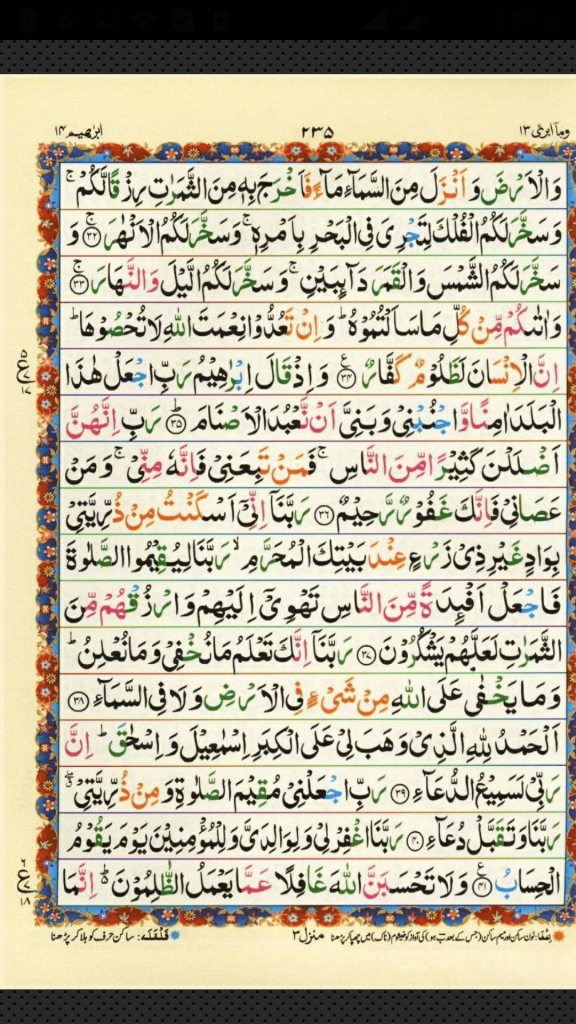 8:57
وما ابرئ ۱۳ ۲۳۵ ابرٰهیم ۱۴
وَالْاَرْضَ وَاَنْزَلَ مِنَ السَّمَآءِ مَآءً فَاَخْرَجَ بِهٖ مِنَ الثَّمَرٰتِ رِزْقًا لَّكُمْ ۚ
وَسَخَّرَ لَكُمُ الْفُلْكَ لِتَجْرِىَ فِى الْبَحْرِ بِاَمْرِهٖ ۚ وَسَخَّرَ لَكُمُ الْاَنْهٰرَ ۚ ﴿۳۲﴾ وَ
سَخَّرَ لَكُمُ الشَّمْسَ وَالْقَمَرَ دَآئِبَيْنِ ۚ وَسَخَّرَ لَكُمُ الَّيْلَ وَالنَّهَارَ ۚ ﴿۳۳﴾
وَاٰتٰىكُمْ مِّنْ كُلِّ مَا سَاَلْتُمُوْهُ ؕ وَاِنْ تَعُدُّوْا نِعْمَتَ اللّٰهِ لَا تُحْصُوْهَا ؕ
اِنَّ الْاِنْسَانَ لَظَلُوْمٌ كَفَّارٌ ﴿۳۴﴾ ع وَاِذْ قَالَ اِبْرٰهِيْمُ رَبِّ اجْعَلْ هٰذَا
الْبَلَدَ اٰمِنًا وَّاجْنُبْنِىْ وَبَنِىَّ اَنْ نَّعْبُدَ الْاَصْنَامَ ؕ ﴿۳۵﴾ رَبِّ اِنَّهُنَّ
اَضْلَلْنَ كَثِيْرًا مِّنَ النَّاسِ ۚ فَمَنْ تَبِعَنِىْ فَاِنَّهٗ مِنِّىْ ۚ وَمَنْ
عَصَانِىْ فَاِنَّكَ غَفُوْرٌ رَّحِيْمٌ ﴿۳۶﴾ رَبَّنَاۤ اِنِّىْۤ اَسْكَنْتُ مِنْ ذُرِّيَّتِىْ
بِوَادٍ غَيْرِ ذِىْ زَرْعٍ عِنْدَ بَيْتِكَ الْمُحَرَّمِ ۙ رَبَّنَا لِيُقِيْمُوا الصَّلٰوةَ
فَاجْعَلْ اَفْئِدَةً مِّنَ النَّاسِ تَهْوِىْۤ اِلَيْهِمْ وَارْزُقْهُمْ مِّنَ
الثَّمَرٰتِ لَعَلَّهُمْ يَشْكُرُوْنَ ﴿۳۷﴾ رَبَّنَاۤ اِنَّكَ تَعْلَمُ مَا نُخْفِىْ وَمَا نُعْلِنُ ؕ
وَمَا يَخْفٰى عَلَى اللّٰهِ مِنْ شَىْءٍ فِى الْاَرْضِ وَلَا فِى السَّمَآءِ ﴿۳۸﴾
اَلْحَمْدُ لِلّٰهِ الَّذِىْ وَهَبَ لِىْ عَلَى الْكِبَرِ اِسْمٰعِيْلَ وَاِسْحٰقَ ؕ اِنَّ
رَبِّىْ لَسَمِيْعُ الدُّعَآءِ ﴿۳۹﴾ رَبِّ اجْعَلْنِىْ مُقِيْمَ الصَّلٰوةِ وَمِنْ ذُرِّيَّتِىْ ۖ
رَبَّنَا وَتَقَبَّلْ دُعَآءِ ﴿۴۰﴾ رَبَّنَا اغْفِرْ لِىْ وَلِوَالِدَىَّ وَلِلْمُؤْمِنِيْنَ يَوْمَ يَقُوْمُ
الْحِسَابُ ﴿۴۱﴾ ع وَلَا تَحْسَبَنَّ اللّٰهَ غَافِلًا عَمَّا يَعْمَلُ الظّٰلِمُوْنَ ؕ اِنَّمَا
قلقلہ: ساکن حرف کو ہلا کر پڑھنا
منزل ۳